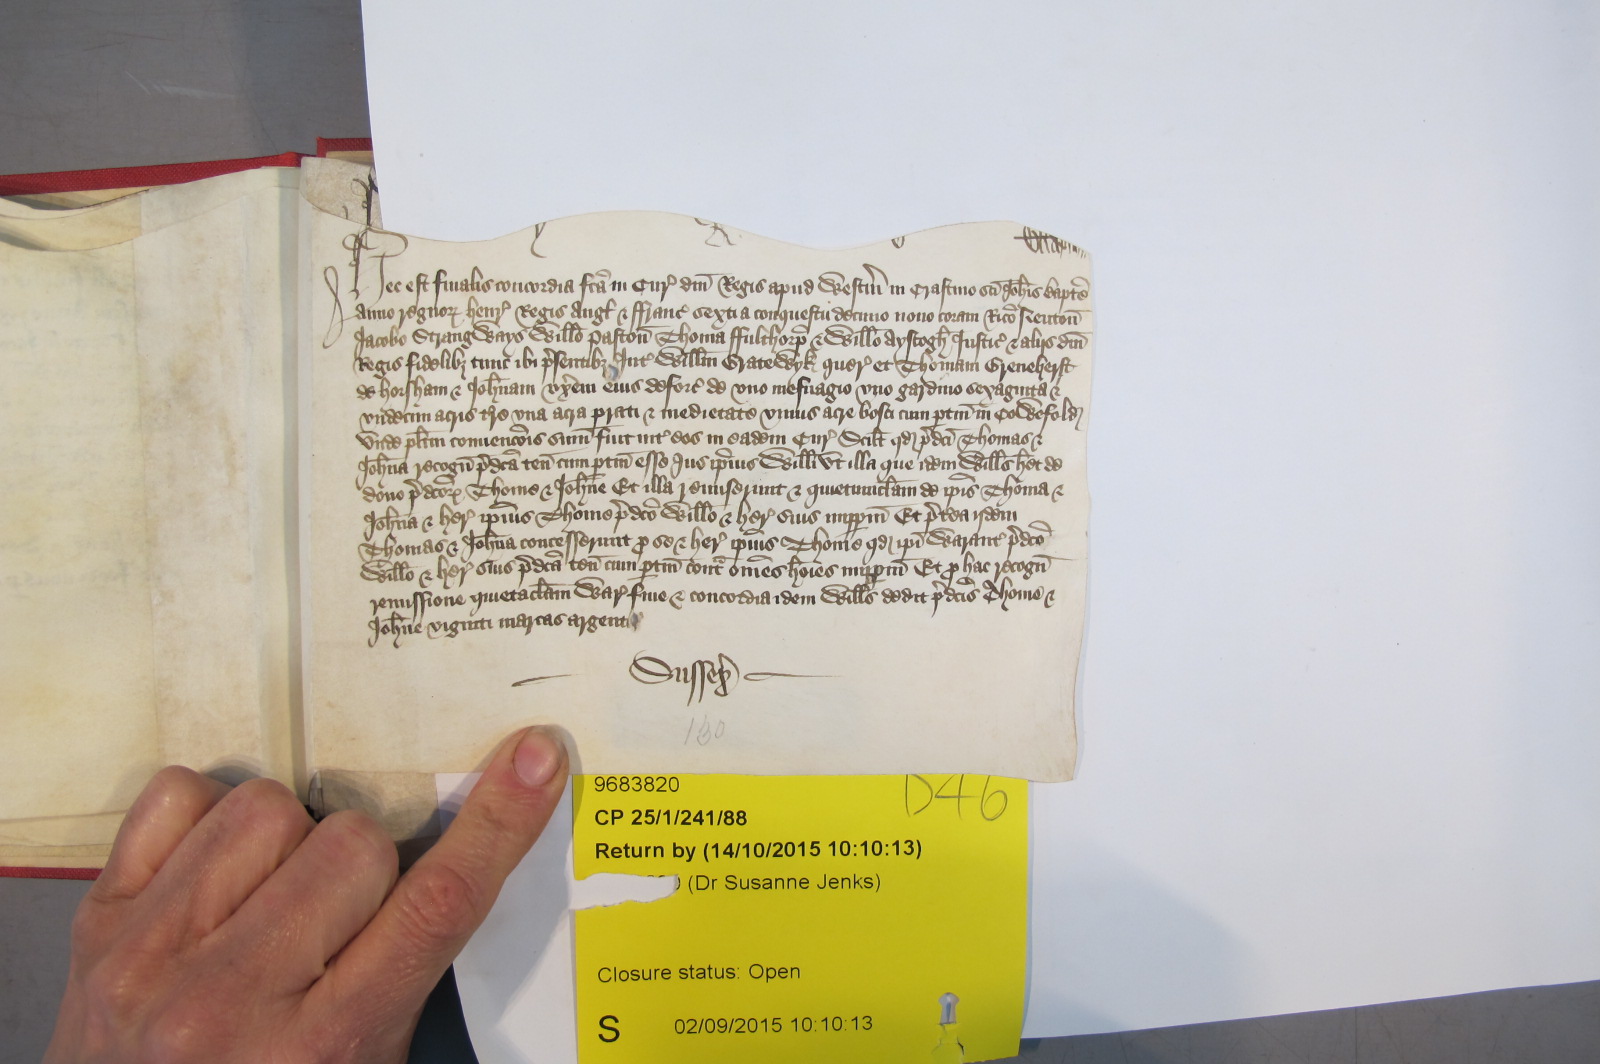 Hec est finalis concordia fc̃a in Cur᷑ dñi Regis apud Westm̃ in Crastino sc̃i Joh̃is Bapt̃e
anno regnoꝝ Henr᷑ Regis Angl̃ & ffranc᷑ sexti a conquestu decimo nono coram Ric̃o Neuton̄
Jacobo Strangways Will̃o Paston̄ Thoma ffulthorp̃ & Will̃o Aystogh̃ Justic᷑ & alijs dñi
Regis fidelibꝫ tunc ibi p̃sentibꝫ Int᷑ Will̃m Gratewyk quer᷑ et Thomam Greneherst
de Horsham & Joh̃nam vx̃em eius deforc᷑ de vno mesuagio vno gardino sexaginta &
vndecim acris t̃re vna acra prati & medietate vnius acre bosci cum ptiñ in Cowefold
Vnde pl̃itm conuenc̃ois sum̃ fuit int᷑ eos in eadem Cur᷑ Scil̃t qd p̃dc̃i Thomas &
Joh̃na recogñ p̃dc̃a teñ cum ptiñ esse Jus ip̃ius Will̃i vt illa que idem Will̃s h̃et de
dono p̃dc̃oꝝ Thome & Joh̃ne Et illa remiserunt & quietumclam̃ de ip̃is Thoma &
Joh̃na & her᷑ ip̃ius Thome p̃dc̃o Will̃o & her᷑ suis imppm̃ Et p̃terea ijdem
Thomas & Joh̃na concesserunt ꝓ se & her᷑ ip̃ius Thome qd ip̃i Warant᷑ p̃dc̃o
Will̃o & her᷑ suis p̃dc̃a teñ cum ptiñ cont᷑ om̃es ho̊ies imppm̃ Et ꝓ hac recogñ
remissione quietaclam̃ War᷑ fine & concordia idem Will̃s dedit p̃dc̃is Thome &
Joh̃ne viginti marcas argenti
Sussex̃
130
9683820
D46
CP 25/1/241/88
Return by (14/10/2015 10:10:13)
(Dr Susanne Jenks)
Closure status: Open
S 02/09/2015 10:10:13